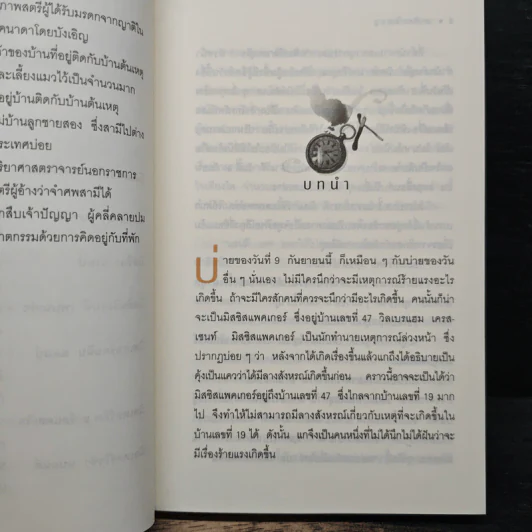 ภาพสตรีผู้ได้รับมรดกจากญาติใน
คนาดาโดยบังเอิญ
ของบ้านที่อยู่ติดกับบ้านต้นเหตุ
และเลี้ยงแมวไว้เป็นจำนวนมาก
อยู่บ้านติดกับบ้านต้นเหตุ
แม่บ้านลูกชายสอง ซึ่งสามีไปต่าง
ประเทศบ่อย
ริยาศาสตราจารย์นอกราชการ
ตรีผู้อ้างว่าจำศพสามีได้
กสืบเจ้าปัญญา ผู้คลี่คลายปม
าตกรรมด้วยการคิดอยู่กับที่พัก
บทนำ
บ่ายของวันที่ 9 กันยายนนี้ ก็เหมือน ๆ กับบ่ายของวัน
อื่น ๆ นั่นเอง ไม่มีใครนึกว่าจะมีเหตุการณ์ร้ายแรงอะไร
เกิดขึ้น ถ้าจะมีใครสักคนที่ควรจะนึกว่ามีอะไรเกิดขึ้น คนนั้นก็น่า
จะเป็นมิสซิสแพคเกอร์ ซึ่งอยู่บ้านเลขที่ 47 วิลเบรแฮม เครส-
เซนท์ มิสซิสแพคเกอร์ เป็นนักทำนายเหตุการณ์ล่วงหน้า ซึ่ง
ปรากฏบ่อย ๆ ว่า หลังจากได้เกิดเรื่องขึ้นแล้วแกถึงได้อธิบายเป็น
คุ้งเป็นแควว่าได้มีลางสังหรณ์เกิดขึ้นก่อน คราวนี้อาจจะเป็นได้ว่า
มิสซิสแพคเกอร์อยู่ถึงบ้านเลขที่ 47 ซึ่งไกลจากบ้านเลขที่ 19 มาก
ไป จึงทำให้ไม่สามารถมีลางสังหรณ์เกี่ยวกับเหตุที่จะเกิดขึ้นใน
บ้านเลขที่ 19 ได้ ดังนั้น แกจึงเป็นคนหนึ่งที่ไม่ได้นึกไม่ได้ฝันว่าจะ
มีเรื่องร้ายแรงเกิดขึ้น